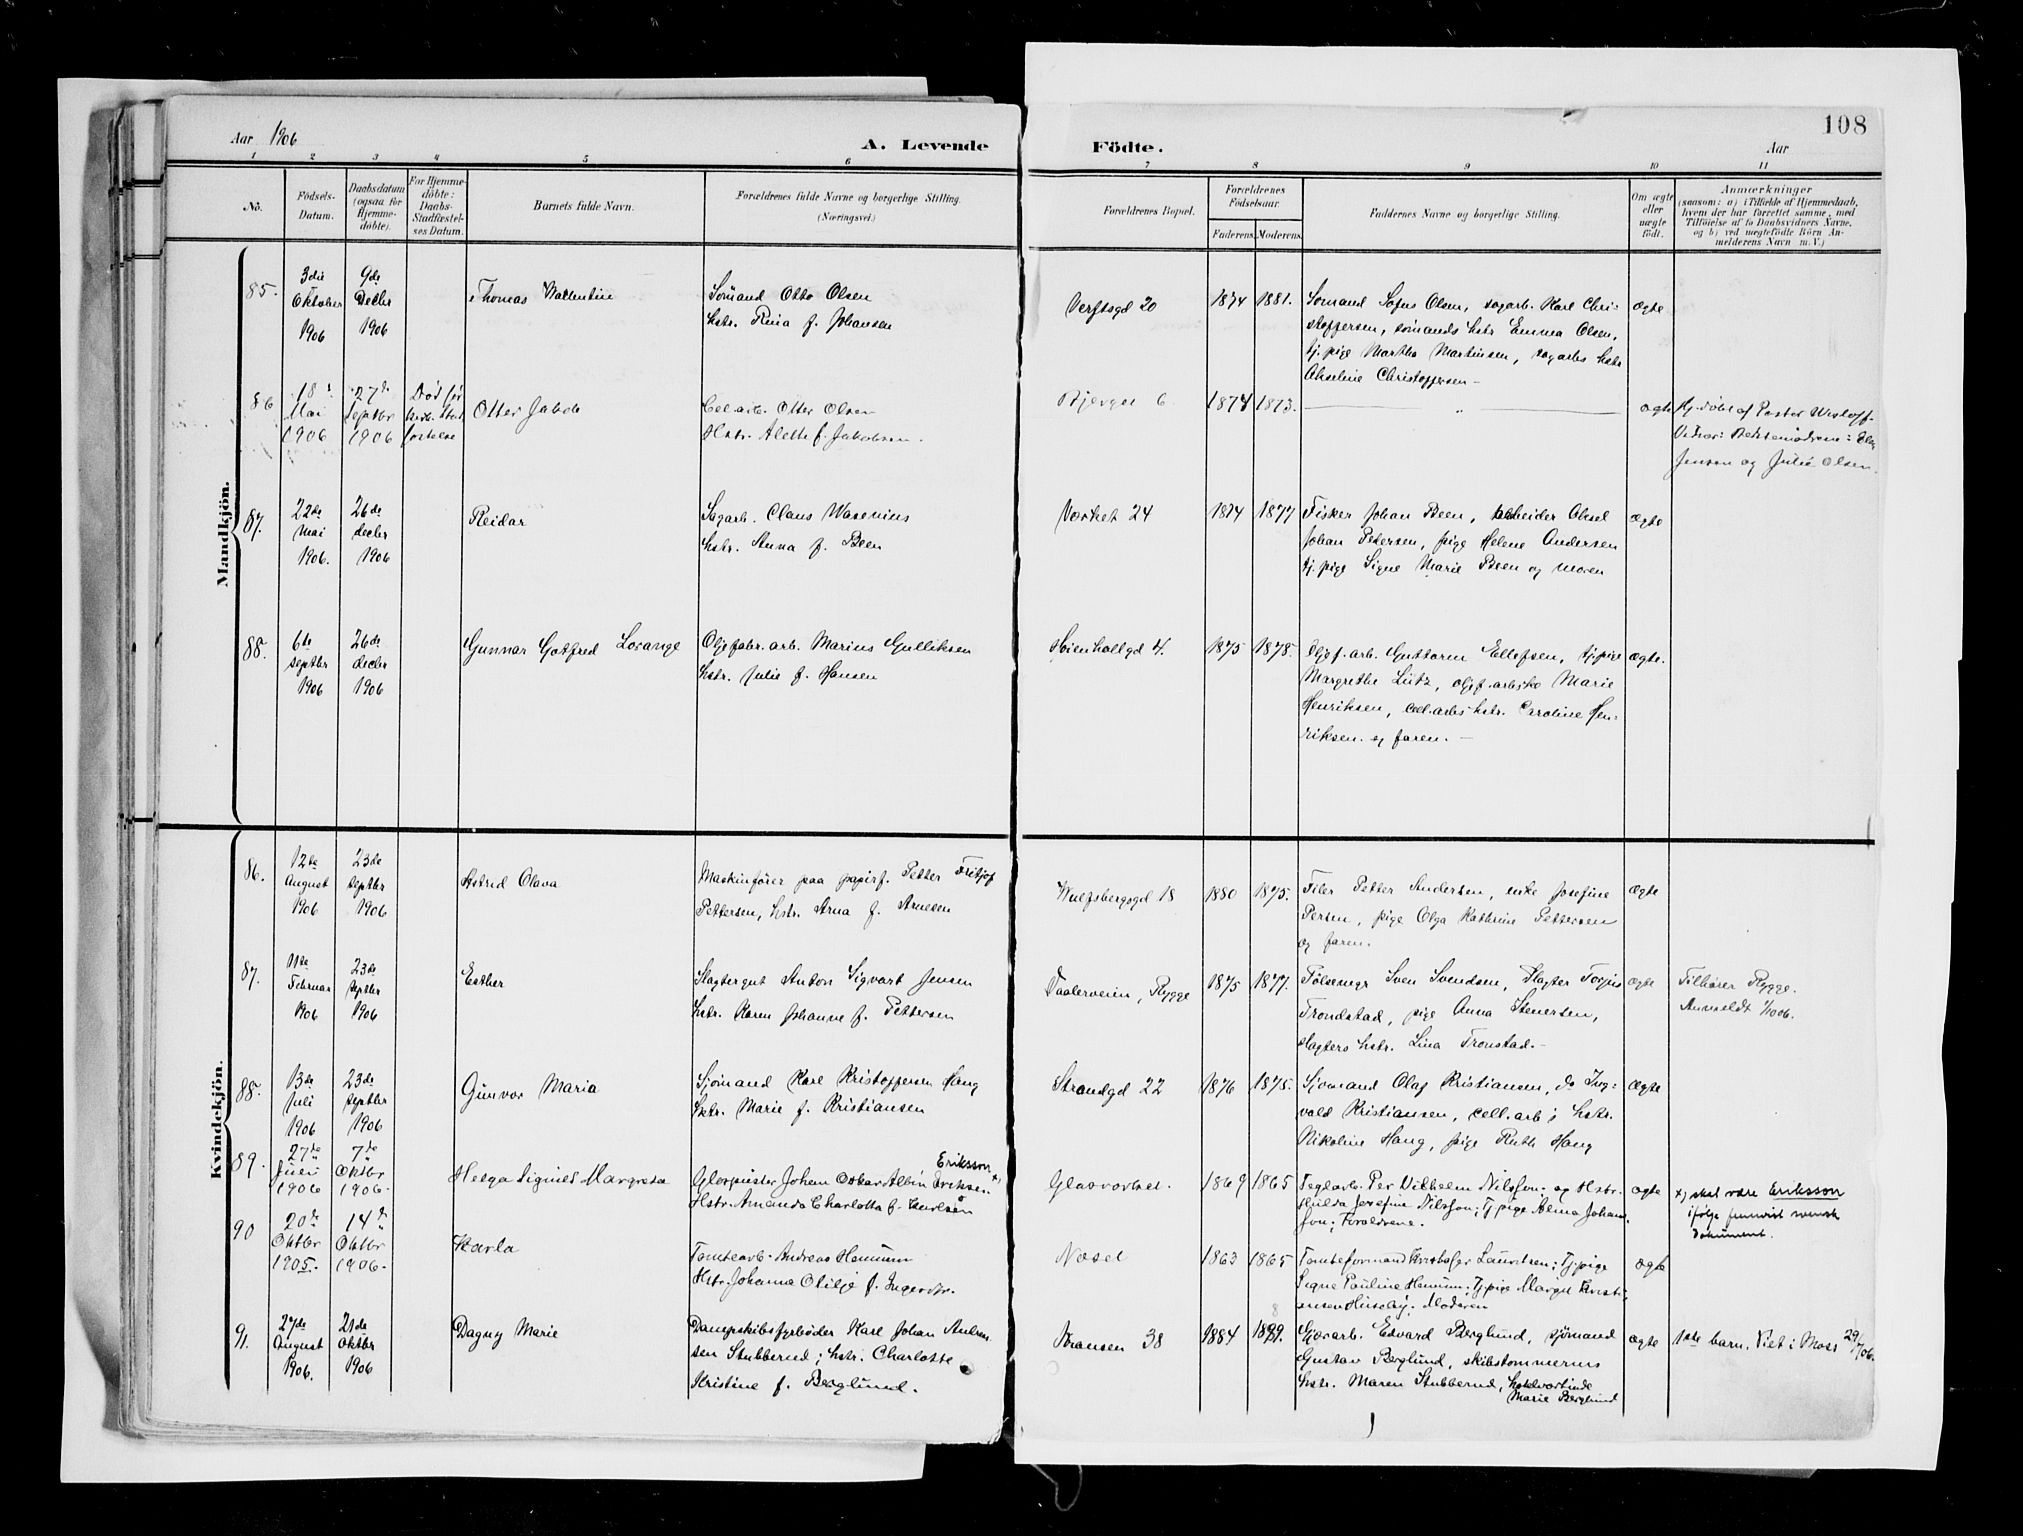 Aar 1906
A. Levende
Födte.
Aar
108
1 2 3 4 5 6 7 8 9 10 11
No.
Födsels-
Datum.
Daabsdatum
(ogsaa for
Hjemme-
döbte).
For Hjemme-
döbte:
Daabs-
Stadfæstel-
ses Datum.
Barnets fulde Navn.
Forældrenes fulde Navne og borgerlige Stilling.
(Næringsvei.)
Forældrenes Bopæl.
Forældrenes
Födselsaar.
Faderens. Moderens.
Faddernes Navne og borgerlige Stilling.
Om ægte
eller
uægte
födt.
Anmærkninger
(saasom: a) i Tilfælde af Hjemmedaab,
hvem der har forrettet samme, med
Tilföielse af to Daabsvidners Navne,
og b) ved uægtefödte Börn An-
melderens Navn m. V.)
Mandkjön.
85.
3die
Oktober
1906
9de
Decbr
1906
Thomas Wallentin
Sømand Otto Olsen
hstr. Rina f. Johansen
Verftsgd 20
1874 1881.
Sømand Sofus Olsen, sagarb. Karl Chri-
stoffersen, sømands hstr Emma Olsen,
tj. pige Martha Martinsen, sagarbs hstr
Akseline Christoffersen -
ægte
86
18
Mai
1906
27de
Septbr
1906
Død før
kirk. Stad
festelse
Otter Jakob
Cel.arb. Otter Olsen
Hstr. Alette f. Jakobsen.
Bjerget 6.
1874 1873.
"
ægte
Hj. døbt af Pastor
Vidner:
Jensen og Julie Olsen.
87.
22de
Mai
1906.
26de
decbr
1906
Reidar
Sagarb. Claus Wasenius
hstr. Anna f. Been
Værket 24
1874 1877
Fisker Johan Been, arbeider Aksel
Johan Petersen, pige Helene Andersen
tj. pige Signe Marie Been og moren
ægte
88.
6te
septbr
1906
26de
decbr
1906
Gunnar Gotfred Lorange
Oljefabr. arb. Marius Gulliksen
hstr. Julie f. Hansen
Høienhallgd 4.
1875 1878.
Oljef. arb. Guttorm Ellefsen, tj.pige
Margrethe Lütz, oljef. arbske Marie
Henriksen, cell.arbs hstr. Caroline Hen-
riksen. og faren. -
ægte.
Kvindekjön.
86.
12te
August
1906
23de
septbr
1906
Astrid Olava
Maskinfører paa papirf. Petter Fritjof
Pettersen, hstr. Arna f. Arnesen
Wulfsbergsgd 18
1880 1875.
Filer Petter Andersen, enke Josefine
Persen, pige Olga Kathrine Pettersen
og faren.
ægte
87.
11te
Februar
1906
23de
septbr
1906
Esther
Slagtergut Anton Sigvart Jensen
hstr. Karen Johanne f. Pettersen
Vaalerveien, Rygge
1875 1877.
Pølsemgr Sven Svendsen, slagter Torjus
Trondstad, pige Anna Stenersen,
slagters hstr. Lina Tronstad. -
ægte
Tilhører Rygge.
Anmeldt 1/10 06.
88.
13de
Juli
1906
23de
septbr
1906
Gunvor Maria
Sjømand Karl Kristoffersen Haug
hstr. Marie f. Kristiansen
Strandgd 22
1876 1875.
Sjømand Olaf Kristiansen, do Ing-
vald Kristiansen, cell.arb's hstr.
Nikoline Haug, pige Ruth Haug
ægte
89.
27de
Juli
1906
7de
Oktbr
1906.
Helga Signild Margreta
Eriksson x)
Glaspuster Johan Oskar Albin Eriksen
Hstr. Amanda Charlotta f. Karlson
Glasværket.
1869 1865
Teglarb. Per Vilhelm Nilsson; og Hstr.
Hulda Josefine Nilsson; Tj.pige Alma Johans-
son; Forældrene.
ægte
x) skal være Eriksson
ifølge fremvist svensk
dokument.
90
20de
Oktbr
1905.
14de
Oktbr
1906.
Karla
Tomtearb. Andreas Hennum
Hstr. Johanna Otilje f. Ingerdtr.
Næset
1863 1865
Tomteformand Kristofer Lauritsen; Tj.pige
Signe Pauline Hennum; Tj.pige Margit Kristi-
ansen Huseby. Moderen
ægte
91.
27de
August
1906.
21de
Oktbr
1906
Dagny Marie
Dampskibsfyrbøder Karl Johan Andrea-
sen Stubberud; hstr. Charlotte
Kristine f. Berglund.
Kransen 38
1884 1889.
8
Gjærarb. Edvard Berglund, sjømand
Gustav Berglund, skibstømmerms
hstr. Maren Stubberud, hotelværtinde
Marie Berglund
ægte
1ste barn. Viet i Moss 29/7 06.